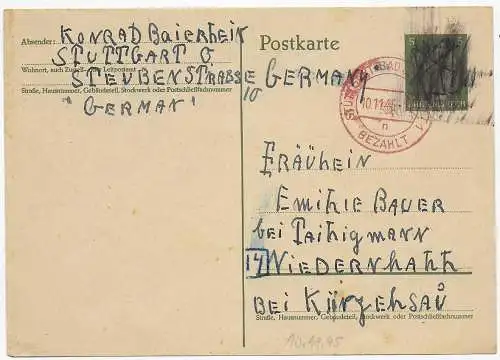 Absender: KONRAD Baierlein
STUTTGART O
Wohnort, auch Zustell- oder Leitpostamt
STEUBENSTRASSE GERMANY
10
Straße, Hausnummer, Gebäudeteil, Stockwerk oder Postschließfachnummer
"GERMAN"
Postkarte
10.11.45
n
BEZAHLT
FRÄUHEIN
EMIHIE BAUER
bei
14 NIEDERNHAHH
BEI KÜRZEHSAŬ
Straße, Hausnummer, Gebäudeteil, Stockwerk oder Postschließfachnummer
10.11.45